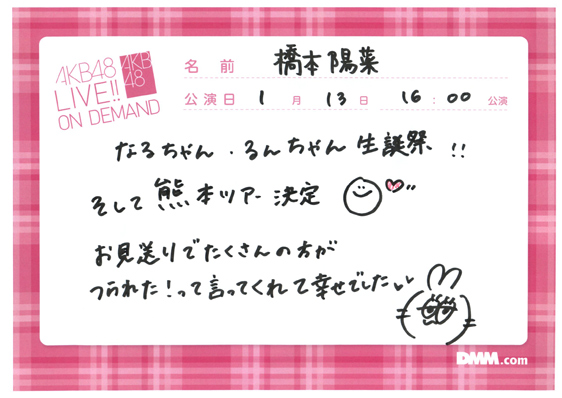 AKB48
LIVE!!
ON DEMAND
AKB
48
名前 橋本陽菜
公演日 1月13日 16:00公演
なるちゃん・るんちゃん生誕祭!!
そして熊本ツアー決定
お見送りでたくさんの方が
つられた!って言ってくれて幸せでした
DMM.com